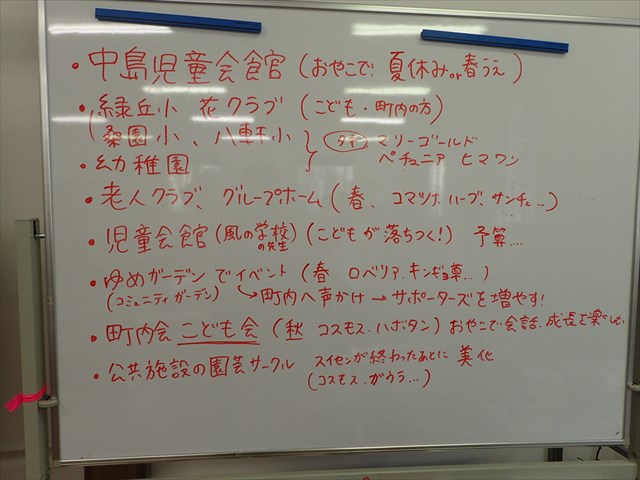 ・中島児童会館（おやこで 夏休みor春うえ）
・緑丘小 花クラブ（こども・町内の方）
（桑園小、八軒小
タネ マリーゴールド
ペチュニア ヒマワリ
・幼稚園
・老人クラブ、グループホーム（春、コマツナ、ハーブ、サンチュ…）
・児童会館（風の学校の先生）（こどもが落ちつく！） 予算…
・ゆめガーデンでイベント（春 ロベリア、キンギョ草…）
（コミュニティガーデン） →町内へ声かけ→サポーターズを増やす！
・町内会 こども会（秋 コスモス、ハボタン）おやこで会話、成長を楽しむ
・公共施設の園芸サークル スイセンが終わったあとに 美化
（コスモス、ガウラ…）